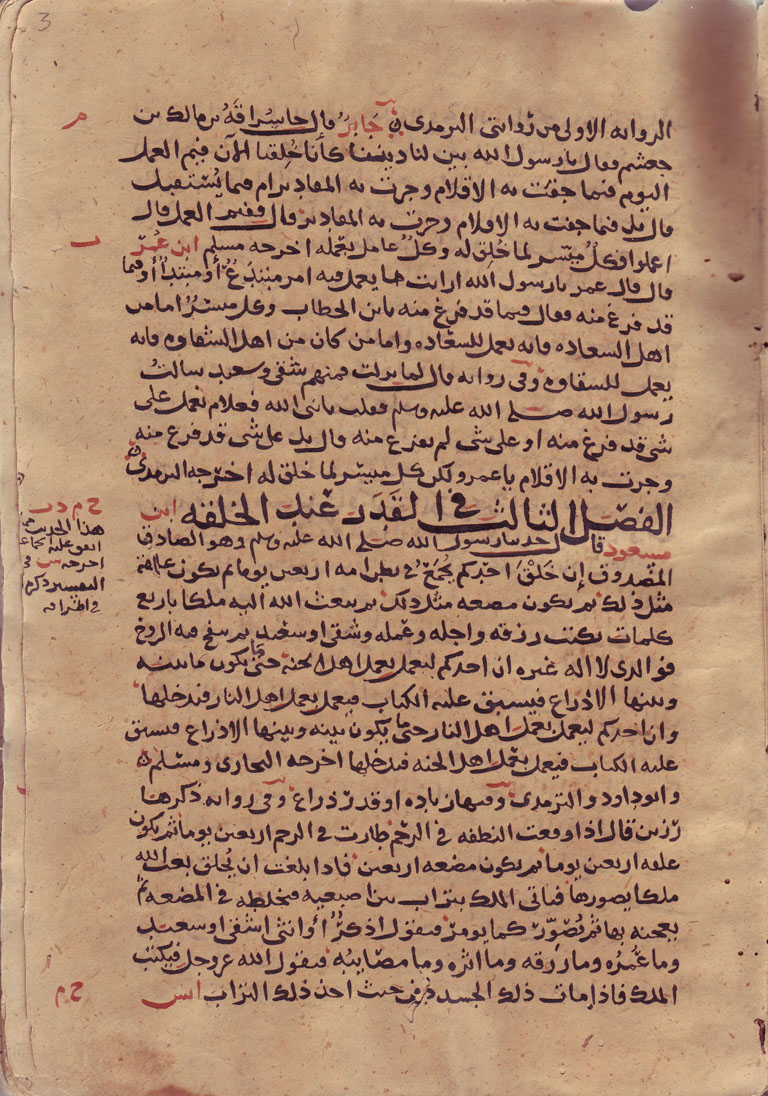 3
م الرواية الاولى من روايتي الترمذي جابر قال جا سراقة بن مالك بن
جعشم فقال يا رسول الله بين لنا ديننا كأنا خلقنا الآن فيم العمل
اليوم فيما جفت به الاقلام وجرت به المقادير ام فيما يستقبل
قال بل فيما جفت به الاقلام وجرت به المقادير قال ففيم العمل قال
ت اعملوا فكل ميسر لما خلق له وكل عامل بعمله اخرجه مسلم ابن عمر
قال قال عمر يا رسول الله ارايت ما يعمل فيه امر مبتدع او مبتدأ او فيما
قد فرغ منه فقال فيما قد فرغ منه يا بن الخطاب وكل ميسر اما من
اهل السعاده فانه يعمل للسعاده واما من كان من اهل الشقاوه فانه
يعمل للشقاوه وفي روايه قال لما نزلت فمنهم شقي وسعيد سالت
رسول الله صلى الله عليه وسلم فقلت يا نبي الله فعلام نعمل على
شي قد فرغ منه او على شي لم يفرغ منه قال بل على شي قد فرغ منه
وجرت به الاقلام يا عمر ولكن كل ميسر لما خلق له اخرجه الترمذي
الفصل الثالث في القدر عند الخلقه ابن
مسعود قال حدثنا رسول الله صلى الله عليه وسلم وهو الصادق
المصدوق إن خلق احدكم يجمع في بطن امه اربعين يوما ثم يكون علقة
مثل ذلك ثم يكون مضغه مثل ذلك ثم يبعث الله اليه ملكا باربع
كلمات يكتب رزقه واجله وعمله وشقي او سعيد ثم ينفخ فيه الروح
فوالذي لا اله غيره ان احدكم ليعمل بعمل اهل الجنه حتى ما يكون ما بينه
وبينها الا ذراع فيسبق عليه الكتاب فيعمل بعمل اهل النار فيدخلها
وان احدكم ليعمل بعمل اهل النار حتى ما يكون بينه وبينها الا ذراع فيسبق
عليه الكتاب فيعمل بعمل اهل الجنه فيدخلها اخرجه البخاري ومسلم
وابو داود والترمذي وفيها زياده او قدر ذراع وفي روايه ذكرها
رزين قال اذا وقعت النطفه في الرحم طارت في الرحم اربعين يوما ثم يكون
علقه اربعين يوما ثم يكون مضغه اربعين فاذا بلغت ان يخلق بعث الله
ملكا يصورها فياتي الملك بتراب بين اصبعيه فيخلطه في المضغه ثم
يعجنه بها ثم يصور كما يومر فيقول اذكر أو انثى اشقي او سعيد
وما عمره وما رزقه وما اثره وما مصائبه فيقول الله عز وجل فيكتب
الملك فاذا مات ذلك الجسد دفن حيث اخذ ذلك التراب انس
خ م د ت
هذا الحديث
اخرجه
خ م